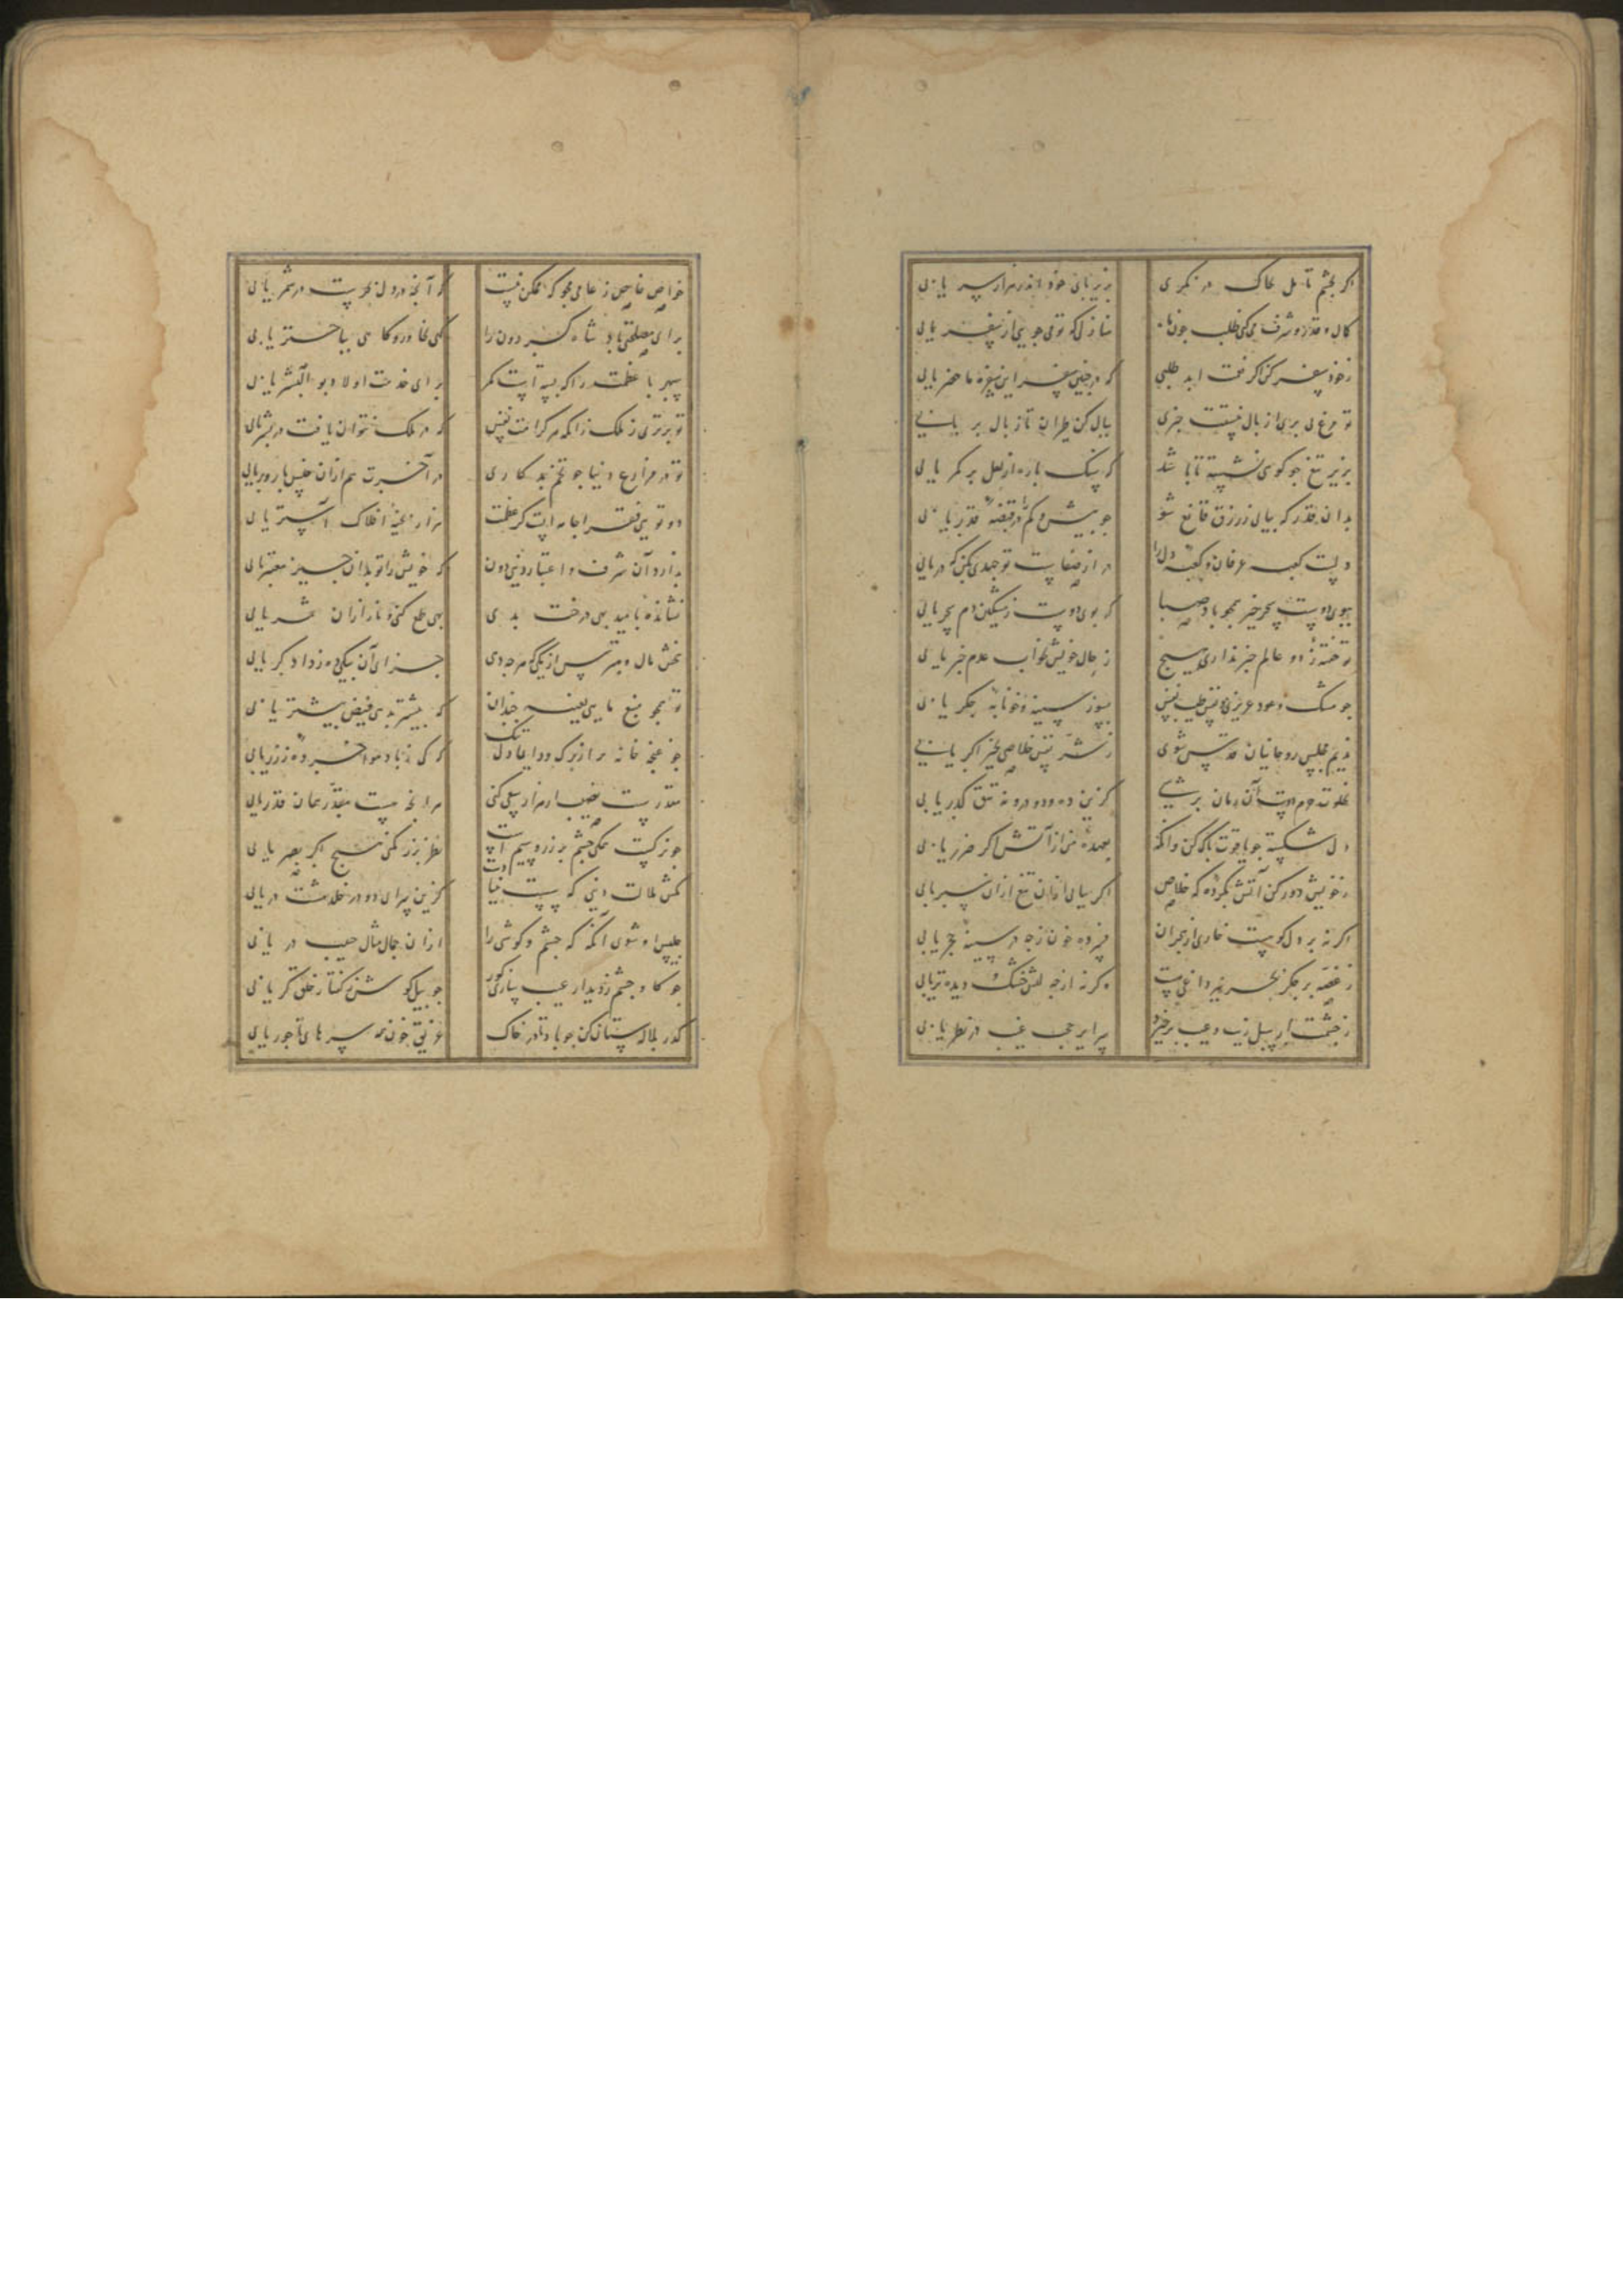 اکر بچشم تامل بخاک در نکری
بزیر پای خود اندر هزار سر یابی
کمال و قدر و شرف می کنی طلب چون ماه
منازلی که تو می جویی از سفر یابی
ز خود سفر کن اکر نعمت ابد طلبی
که در چنین سفر این سفره ما حضر یابی
تو مرغ
ببال کن طیران تا ز بال بر یابی
بزیر تیغ چو کوه
که سنک پاره از لعل بر کمر یابی
بدان قدر که بیابی ز رزق قانع شو
چو بیش و کم قدر یابی
دلست کعبه عرفان و کعبه دل را
در از صفاست تو جهدی بکن که در یابی
ببوی دوست سحر خیز همچو باد صبا
که بوی دوست ز مشکین دم سحر یابی
تو خفته ز دو عالم خبر نداری هیچ
ز حال خویش بخواب عدم خبر یابی
چو مشک و عود عزیزی نفس
بسوز سینه و خونابه جکر یابی
ندیم مجلس روحانیان قدس شوی
ز شر نفس خلاصی اکر یابی
بخلوت حرم دوست آن زمان برسی
کزین ده و دو و نه تتق کذر یابی
دل شکسته چو یاقوت پاک کن وانکه
بعهده من از آتش اکر ضرر یابی
ز خویش دور کن آتش که خلاص
اکر بیابی ازان تیغ ازان سپر یابی
اکر نه بر دل کوهست خاری از هجران
فسرده خون ز چه در سینه حجر یابی
ز غصه بر جکر بحر نیز داغی هست
وکر نه از چه لبش خشک و دیده تر یابی
ز چشمت ار سبل ریب و عیب برخیزد
سراسر غیب در نظر یابی
خواص خاص ز عامی مجو که ممکن نیست
که آنچه در دل بحرست در شمر یابی
برای مصلحتی شاه کردون را
کهی بخاور و کاهی بباختر یابی
سپهر با عظمت را که بسته است کمر
برای خدمت اولاد بو البشر یابی
تو برتری ز ملک زانکه هر کرامت نفس
که در ملک نتوان یافت در بشر یابی
تو در مزارع دنیا چو تخم بد کاری
در آخرت هم ازان جنس بار و بر یابی
دو تویی فقر اجامه ایست کز عظمت
هزار افلاک آستر یابی
ندارد آن شرف و اعتبار دنیی دون
که خویش را تو بدان چیز معتبر یابی
نشانده بامید بهی درخت بدی
بهی طمع مکن زانکه ازان شر یابی
ببخش مال و مترس از کمی که هر چه دهی
جزای آن بیکی ده ز دادکر یابی
تو همچو منبع مایی بعینه چندان
که بیشتر بدهی فیض بیشتر یابی
چو غنچه خانه پر از برک و دل تنک
که کی ز باد هوا خرده ز زر یابی
مقدرست نصیب ار هزار سعی کنی
هر انچه هست مقدر همان قدر یابی
چو نرکست همکی چشم بر زر و سیم است
نظر بزر نکنی هیچ اکر بصر یابی
مکش ملالت دنیی که پست دنیا
کزین سرای دو در در یابی
جلیس او شوی آنکه که چشم و کوشی را
ازان جمال مثال حبیب در یابی
چو کاو چشم ز دیدار عیب سازی کور
چو پیل کوش ز کفتار خلق کر یابی
کذر بلاله ستان کن چو باد تا در خاک
غریق خون همه سرهای تاجور یابی